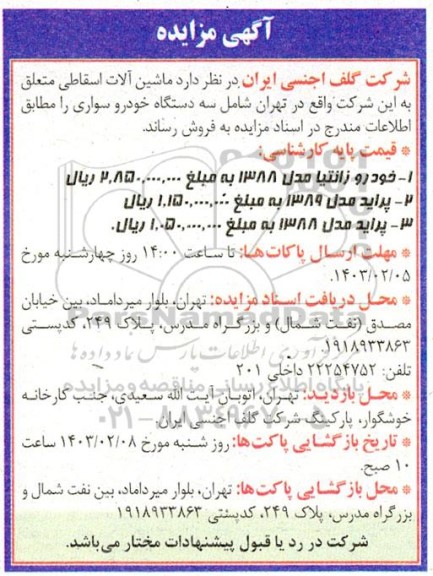 آگهی مزایده
شرکت گلف اجنسی ایران در نظر دارد ماشین آلات اسقاطی متعلق
به این شرکت واقع در تهران شامل سه دستگاه خودرو سواری را مطابق
اطلاعات مندرج در اسناد مزایده به فروش رساند.
* قیمت پایه کارشناسی:
۱- خودرو زانتیا مدل ۱۳۸۸ به مبلغ ۲,۸۵۰,۰۰۰,۰۰۰ ریال
۲- پراید مدل ۱۳۸۹ به مبلغ ۱,۱۵۰,۰۰۰,۰۰۰ ریال
۳- پراید مدل ۱۳۸۸ به مبلغ ۱,۰۵۰,۰۰۰,۰۰۰ ریال.
* مهلت ارسال پاکات‌ها: تا ساعت ۱۴:۰۰ روز چهارشنبه مورخ
۱۴۰۳/۰۲/۰۵.
* محل دریافت اسناد مزایده: تهران، بلوار میرداماد، بین خیابان
مصدق (نفت شمال) و بزرگراه مدرس، پلاک ۲۴۹، کدپستی
۱۹۱۸۹۳۳۸۶۳
تلفن: ۲۲۲۵۴۷۵۲ داخلی ۲۰۱
* محل بازدید: تهران، اتوبان آیت الله سعیدی، جنب کارخانه
خوشگوار، پارکینگ شرکت گلف اجنسی ایران.
* تاریخ بازگشایی پاکت‌ها: روز شنبه مورخ ۱۴۰۳/۰۲/۰۸ ساعت
۱۰ صبح.
* محل بازگشایی پاکت‌ها: تهران، بلوار میرداماد، بین نفت شمال و
بزرگراه مدرس، پلاک ۲۴۹، کدپستی ۱۹۱۸۹۳۳۸۶۳
شرکت در رد یا قبول پیشنهادات مختار می‌باشد.
ParsNamadData
پایگاه اطلاع رسانی مناقصه و مزایده